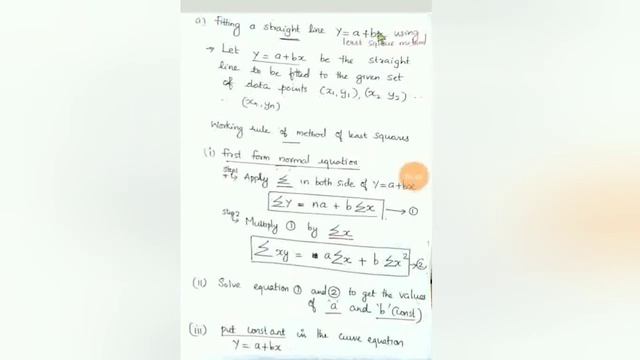 a) fitting a straight line Y = a + bx using
least square method
→ Let Y = a + bx be the straight
line to be fitted to the given set
of data points (x1, y1), (x2 y2) ..
.. (xn, yn)
Working rule of method of least squares
(i) first form normal equation
Step1
→ Apply Σ in both side of Y = a + bx
ΣY = na + bΣx → ①
Step2
→ Multiply ① by Σx
Σxy = aΣx + bΣx² → ②
(ii) Solve equation ① and ② to get the values
of 'a' and 'b' (const)
(iii) put constant in the curve equation
Y = a + bx